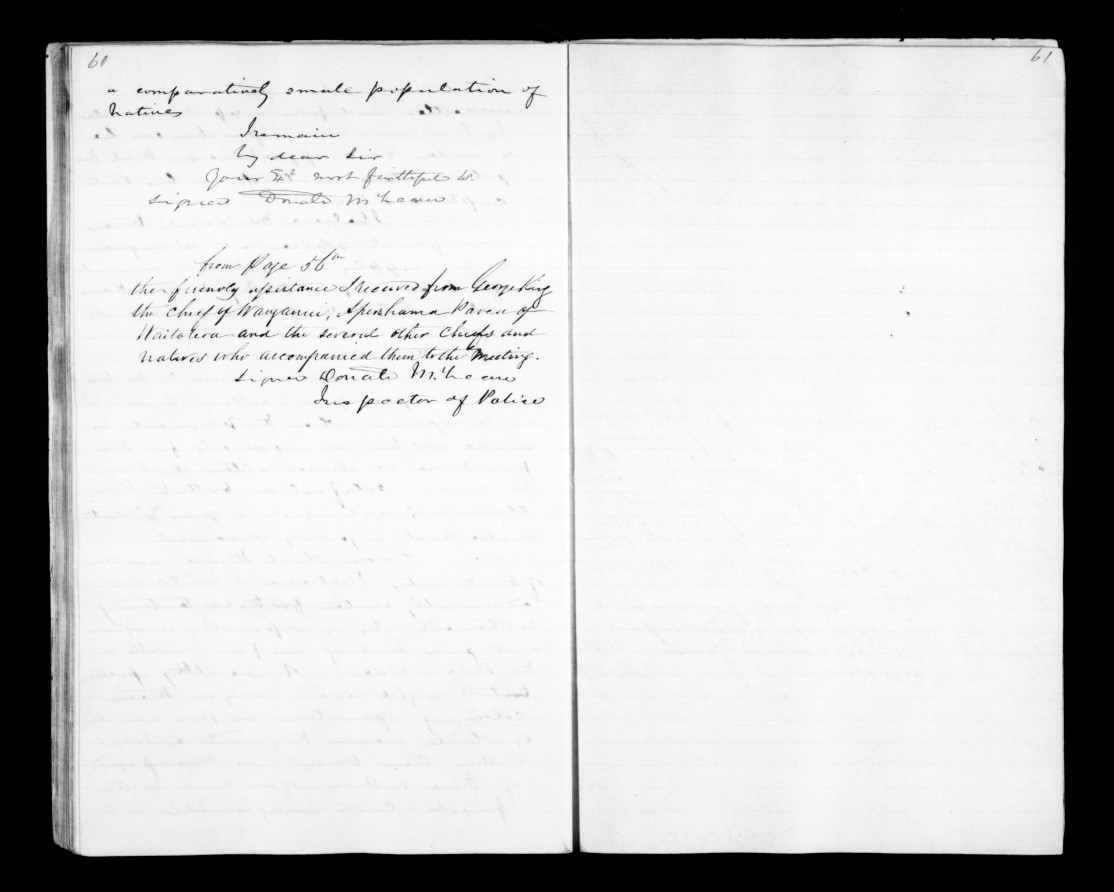 60
a comparatively small population of
Natives
I remain
My dear Sir
Your most faithful
Signed Donald McLean
from Page 56th
the friendly assistance I received from George King
the Chief of Wanganui, Aperahama Parea of
Waitotara and the several other Chiefs and
Natives who accompanied them to the Meeting.
Signed Donald McLean
Inspector of Police
61